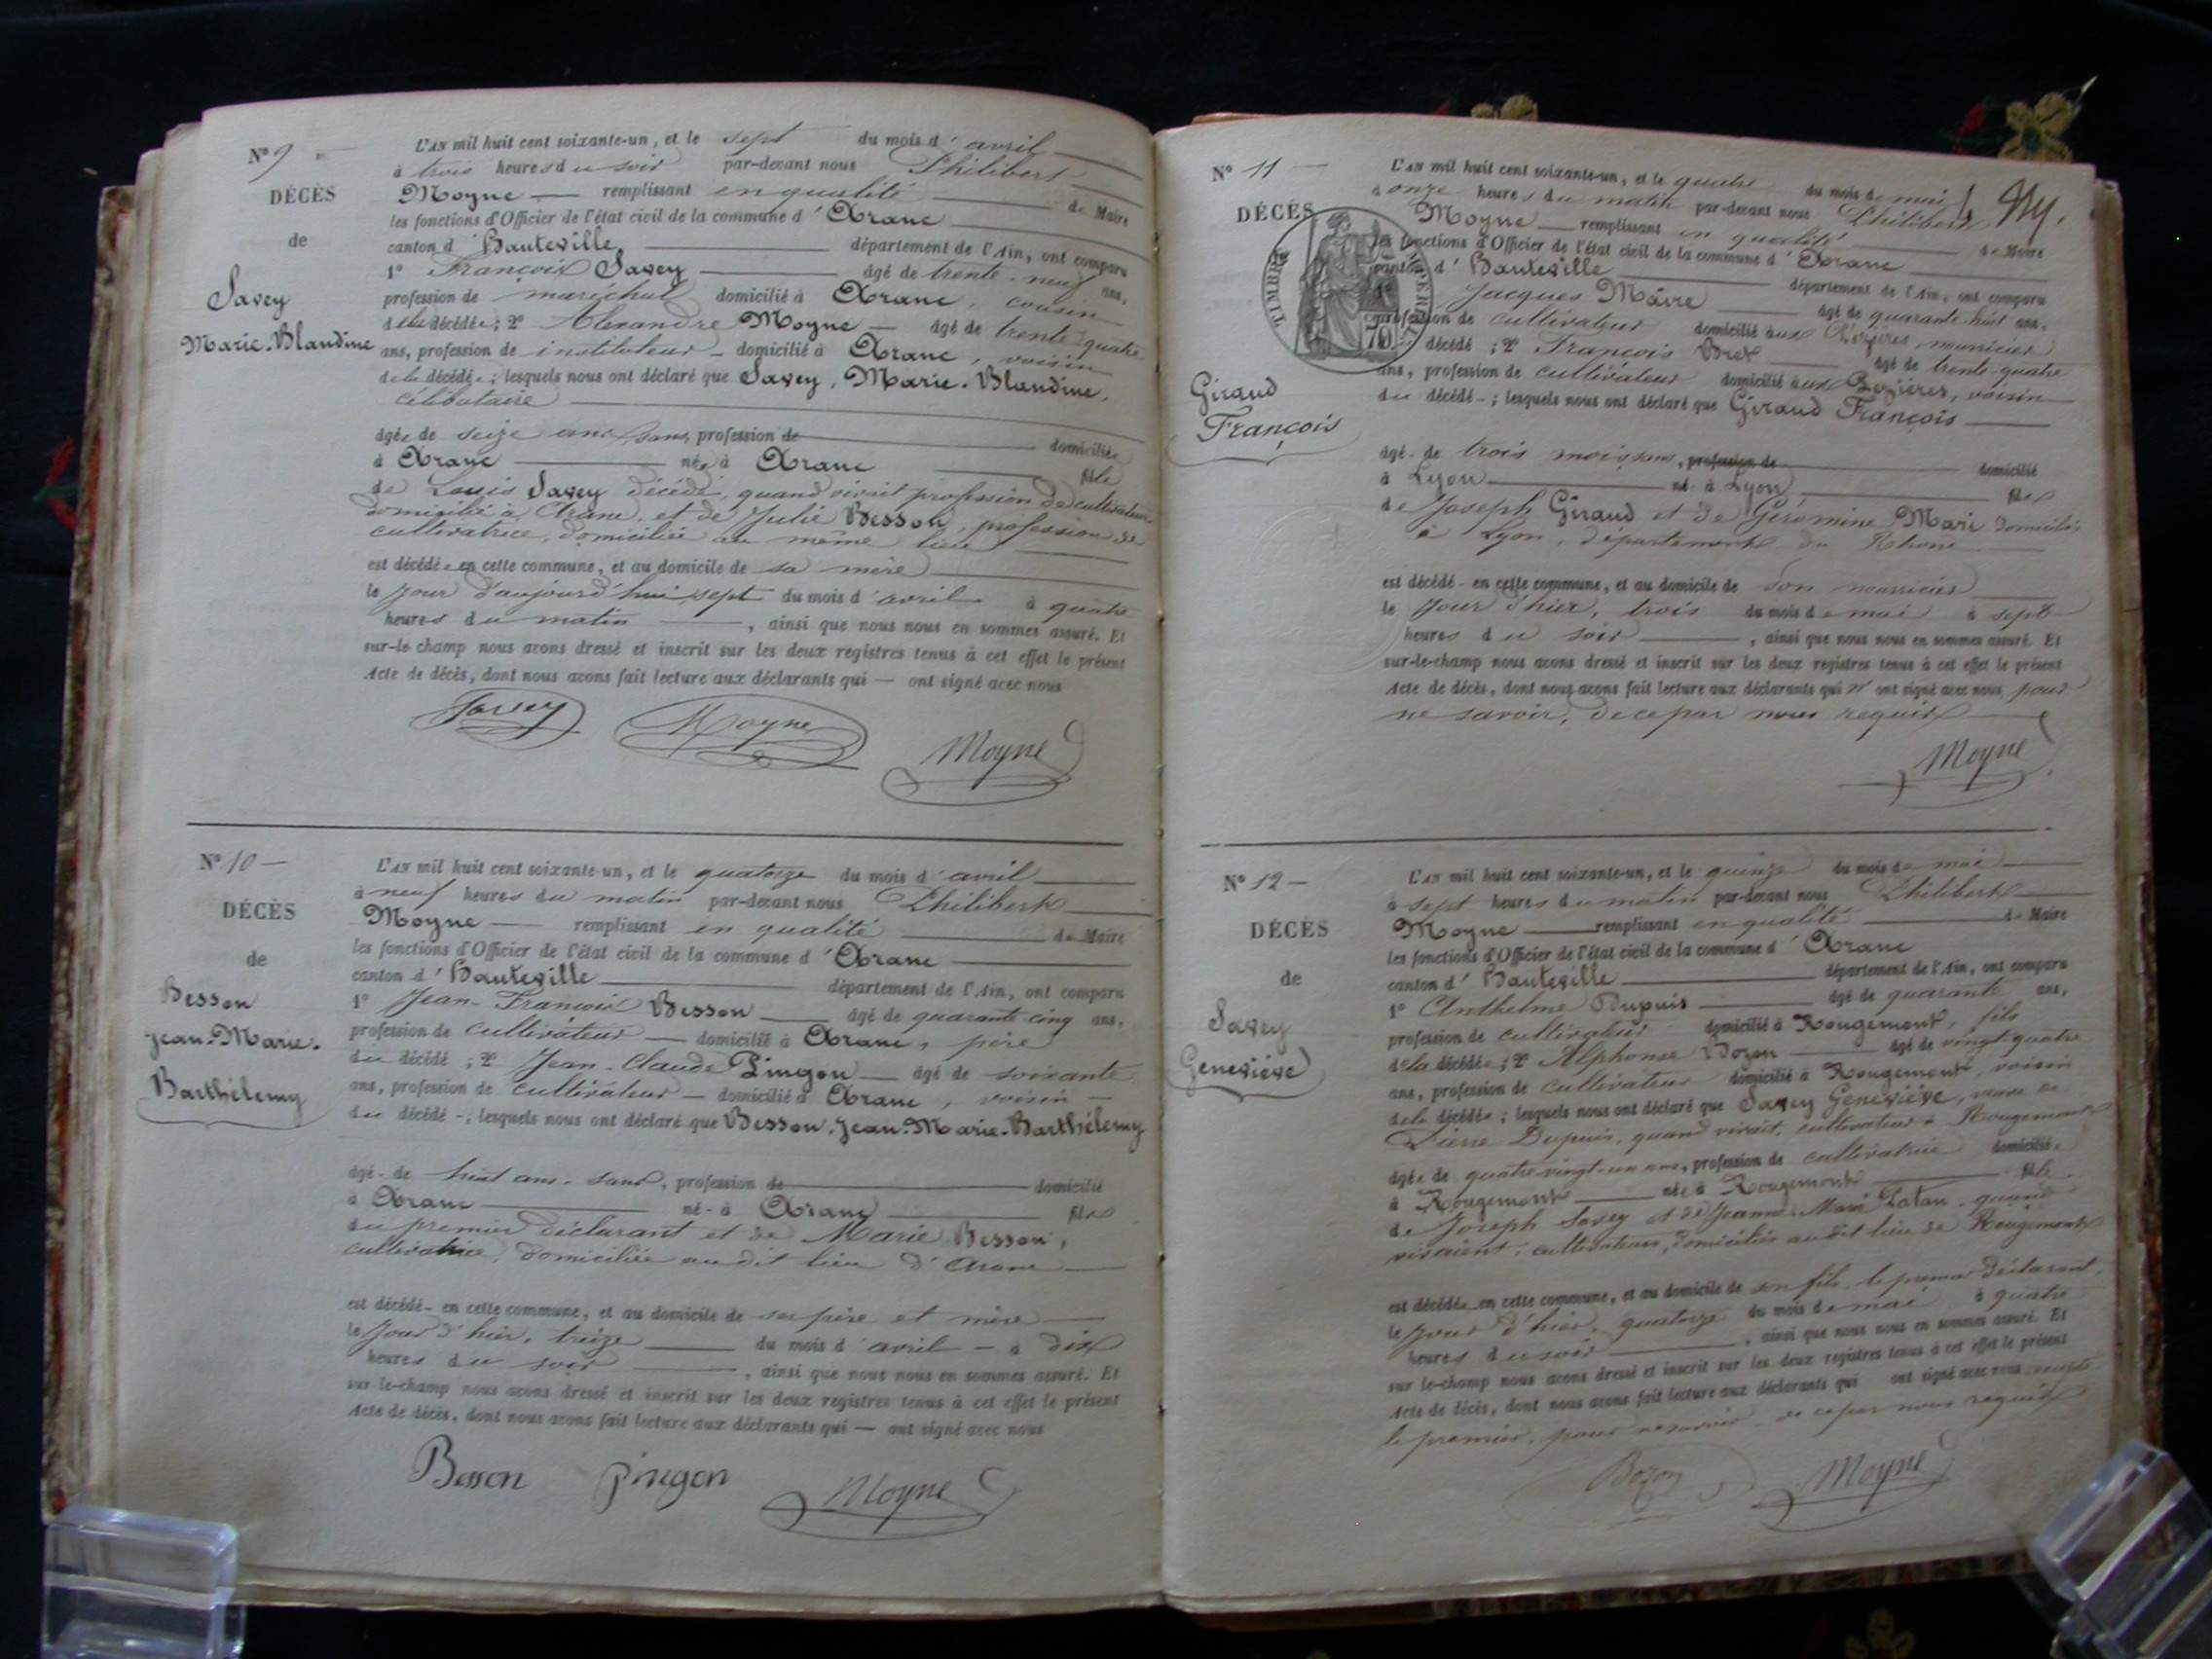 Nº 9
DÉCÈS
de
Savey
Marie-Blandine
L'AN mil huit cent soixante-un, et le sept du mois d'avril
à trois heures du soir par-devant nous Philibert
Moyne remplissant en qualité de Maire
les fonctions d'Officier de l'état civil de la commune d'Arane
canton d'Hauteville département de l'Ain, ont comparu
1º François Savey âgé de trente-neuf ans,
profession de maréchal domicilié à Arane, cousin
de la décédée; 2º Alexandre Moyne âgé de trente-quatre
ans, profession de instituteur domicilié à Arane, voisin
de la décédée; lesquels nous ont déclaré que Savey, Marie-Blandine,
célibataire
âgée de seize ans, sans profession de domiciliée
à Arane née à Arane fille
de Louis Savey décédé, quand vivait profession de cultivateur
domicilié à Arane, et de Julie Besson, profession de
cultivatrice, domiciliée au même lieu
est décédée en cette commune, et au domicile de sa mère
le jour d'aujourd'hui sept du mois d'avril à quatre
heures du matin, ainsi que nous nous en sommes assuré. Et
sur-le-champ nous avons dressé et inscrit sur les deux registres tenus à cet effet le présent
Acte de décès, dont nous avons fait lecture aux déclarants qui — ont signé avec nous
Savey Moyne Moyne
Nº 10
DÉCÈS
de
Besson
Jean-Marie-
Barthélemy
L'AN mil huit cent soixante-un, et le quatorze du mois d'avril
à neuf heures du matin par-devant nous Philibert
Moyne remplissant en qualité de Maire
les fonctions d'Officier de l'état civil de la commune d'Arane
canton d'Hauteville département de l'Ain, ont comparu
1º Jean-François Besson âgé de quarante-cinq ans,
profession de cultivateur domicilié à Arane, père
du décédé; 2º Jean-Claude Pingon âgé de soixante
ans, profession de cultivateur domicilié à Arane, voisin
du décédé; lesquels nous ont déclaré que Besson, Jean-Marie-Barthélemy
âgé de huit ans, sans, profession de domicilié
à Arane né à Arane fils
du premier déclarant et de Marie Besson,
cultivatrice, domiciliée au dit lieu d'Arane
est décédé en cette commune, et au domicile de ses père et mère
le jour d'hier, treize du mois d'avril à dix
heures du soir, ainsi que nous nous en sommes assuré. Et
sur-le-champ nous avons dressé et inscrit sur les deux registres tenus à cet effet le présent
Acte de décès, dont nous avons fait lecture aux déclarants qui — ont signé avec nous
Besson Pingon Moyne
Nº 11
DÉCÈS
TIMBRE IMPÉRIAL
70
Giraud
François
L'AN mil huit cent soixante-un, et le quatre du mois de mai
à onze heures du matin par-devant nous Philibert
Moyne remplissant en qualité de Maire
les fonctions d'Officier de l'état civil de la commune d'Arane
canton d'Hauteville département de l'Ain, ont comparu
Jacques Maire âgé de quarante-huit ans,
profession de cultivateur domicilié aux Lézières, nourricier
décédé; 2º François Bret âgé de trente-quatre
ans, profession de cultivateur domicilié aux Lézières, voisin
du décédé; lesquels nous ont déclaré que Giraud François
âgé de trois mois, sans, profession de domicilié
à Lyon né à Lyon fils
de Joseph Giraud et de Géromine Mari domiciliés
à Lyon, département du Rhône
est décédé en cette commune, et au domicile de son nourricier
le jour d'hier, trois du mois de mai à sept
heures du soir, ainsi que nous nous en sommes assuré. Et
sur-le-champ nous avons dressé et inscrit sur les deux registres tenus à cet effet le présent
Acte de décès, dont nous avons fait lecture aux déclarants qui n'ont signé avec nous, pour
ne savoir, de ce par nous requis
Moyne
Nº 12
DÉCÈS
de
Savey
Geneviève
L'AN mil huit cent soixante-un, et le quinze du mois de mai
à sept heures du matin par-devant nous Philibert
Moyne remplissant en qualité de Maire
les fonctions d'Officier de l'état civil de la commune d'Arane
canton d'Hauteville département de l'Ain, ont comparu
1º Anthelme Dupuis âgé de quarante ans,
profession de cultivateur domicilié à Rougemont, fils
de la décédée; 2º Alphonse Bozon âgé de vingt-quatre
ans, profession de cultivateur domicilié à Rougemont, voisin
de la décédée; lesquels nous ont déclaré que Savey Geneviève, veuve de
Pierre Dupuis, quand vivait, cultivateur à Rougemont
âgée de quatre-vingt-un ans, profession de cultivatrice domiciliée
à Rougemont née à Rougemont fille
de Joseph Savey et de Jeanne-Marie Patan quand
vivaient, cultivateurs, domiciliés audit lieu de Rougemont
est décédée en cette commune, et au domicile de son fils le premier déclarant,
le jour d'hier, quatorze du mois de mai à quatre
heures du soir, ainsi que nous nous en sommes assuré. Et
sur le-champ nous avons dressé et inscrit sur les deux registres tenus à cet effet le présent
Acte de décès, dont nous avons fait lecture aux déclarants qui ont signé avec nous excepté
le premier, pour ne savoir de ce par nous requis
Bozon Moyne